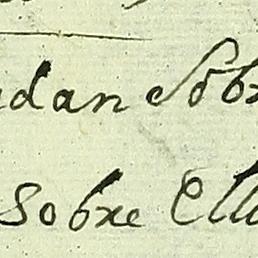 dan Sob
Sobre Ell